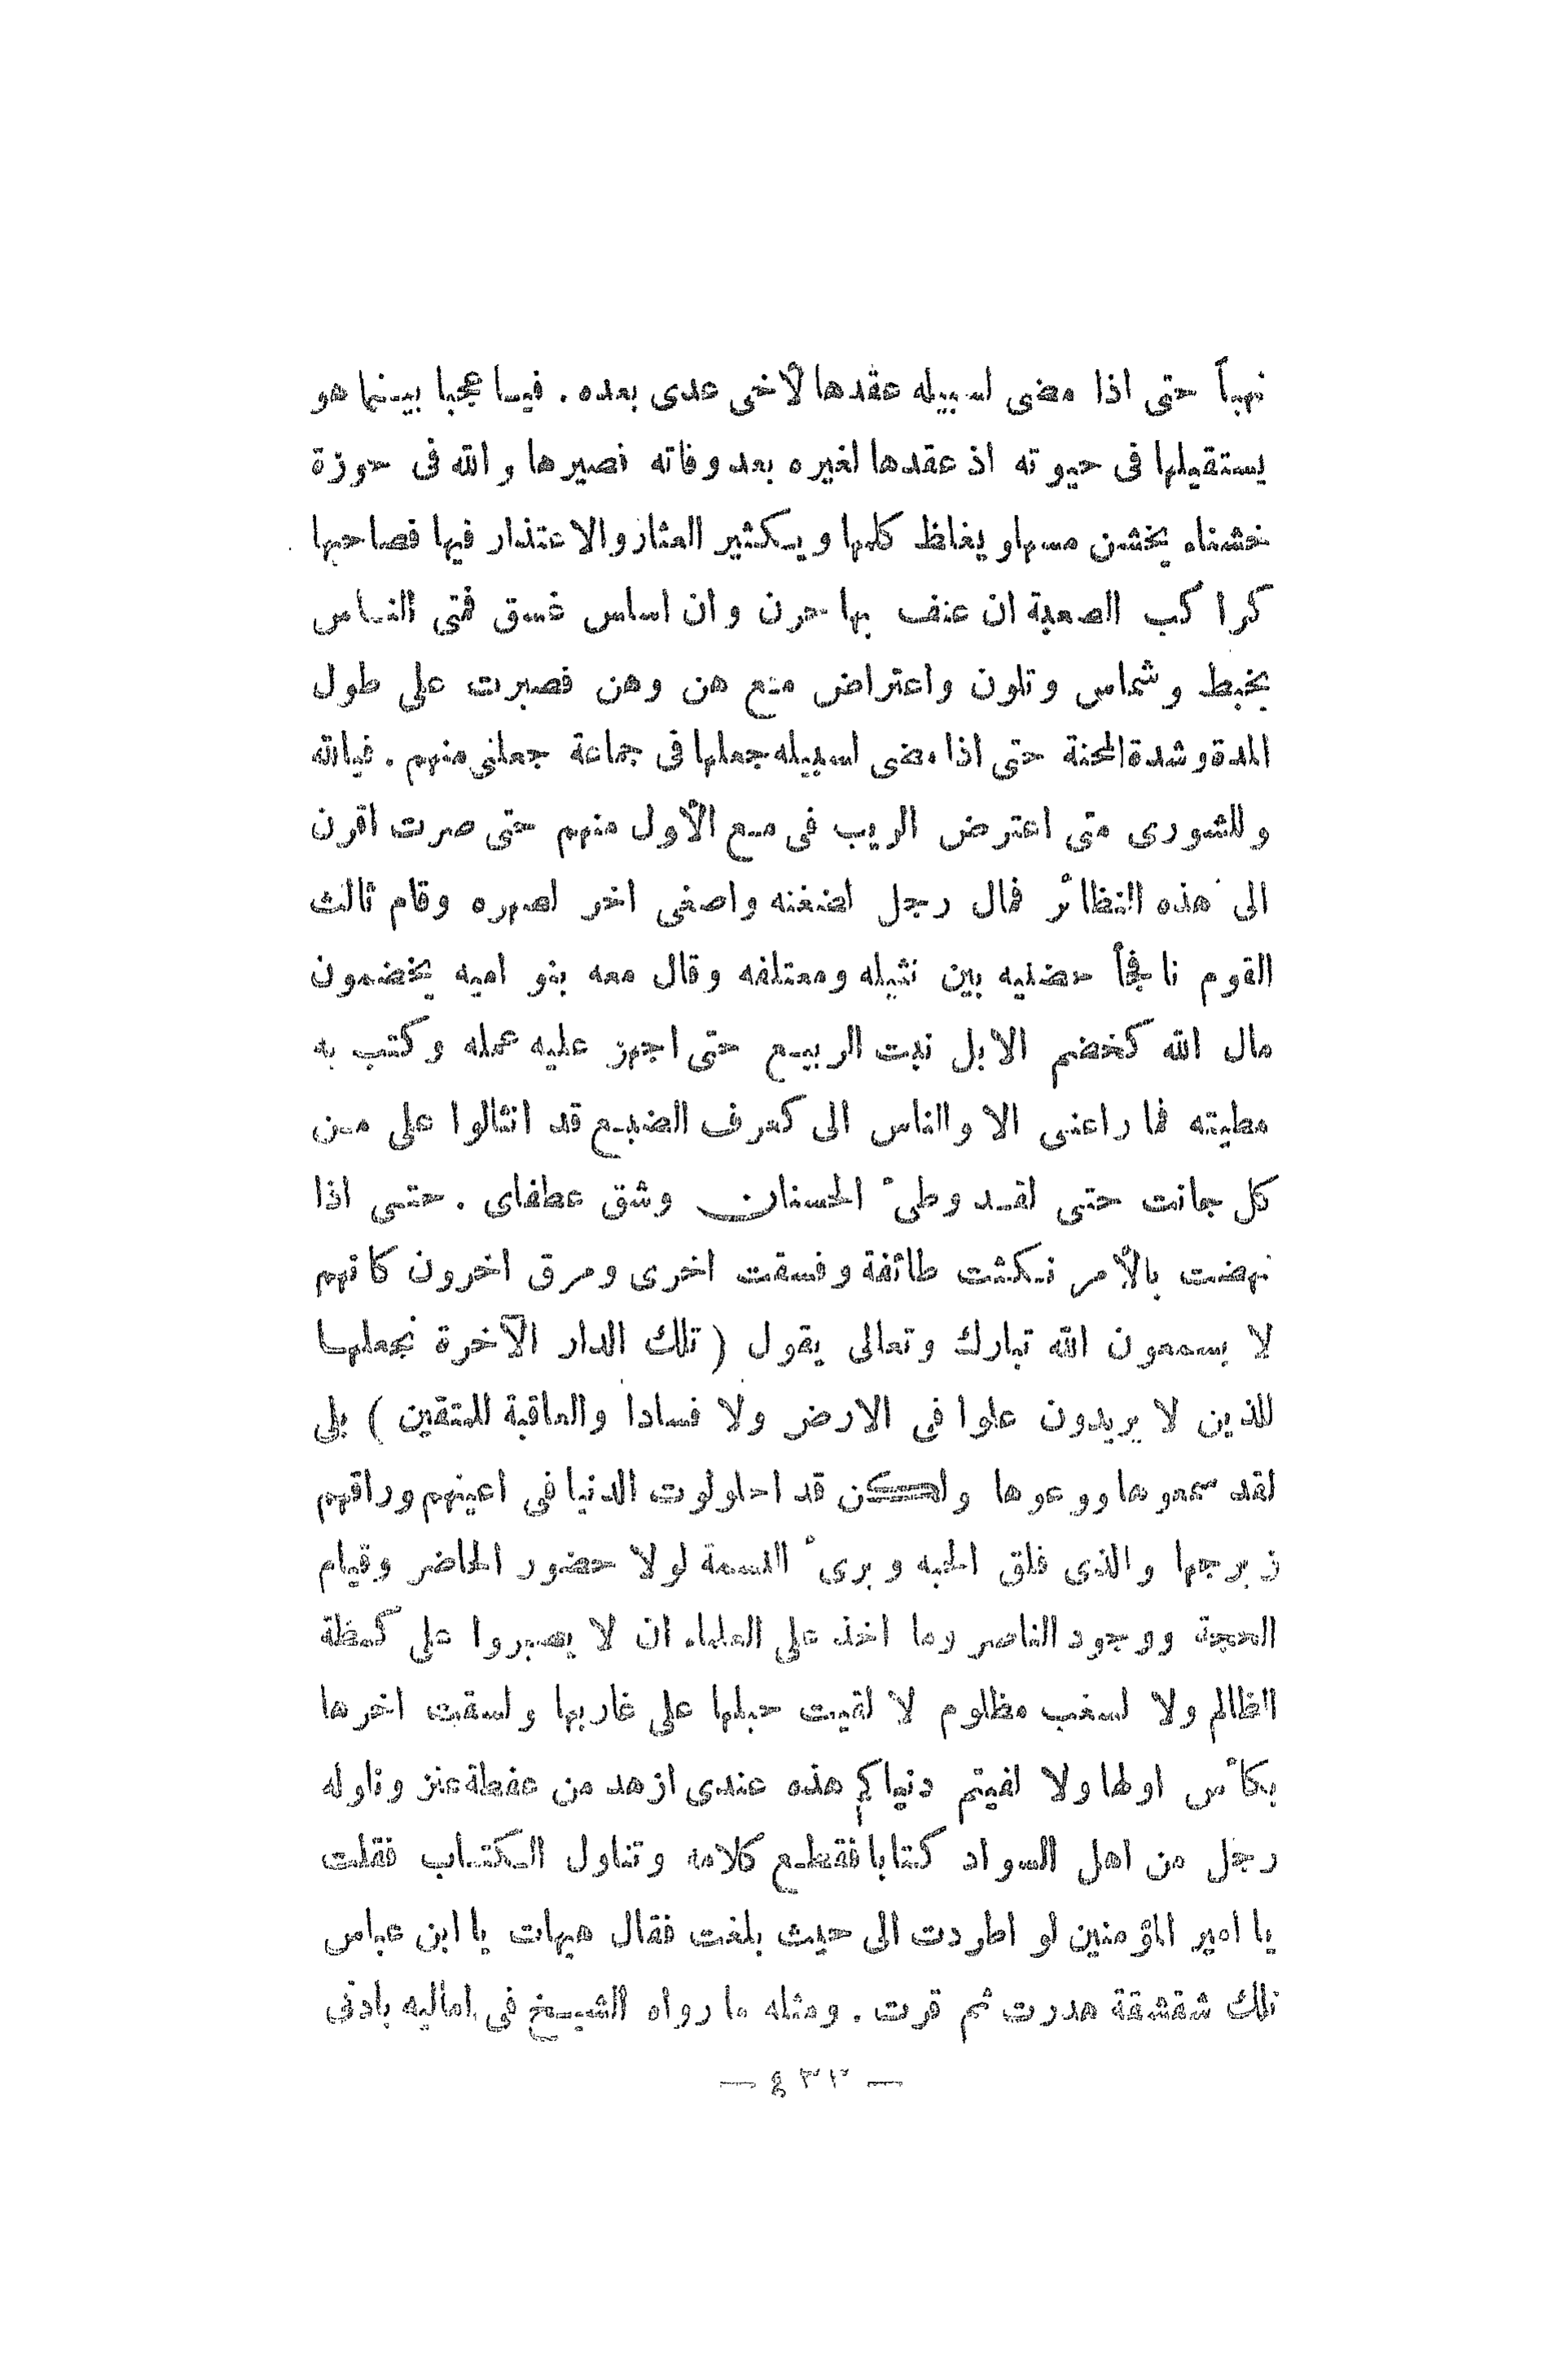 نهباً حتى اذا مضى لسبيله عقدها لأخى عدى بعده . فيا عجبا بينما هو
يستقيلها فى حيوته اذ عقدها لغيره بعد وفاته نصيرها والله فى حوزة
خشناه يخشن مسها ويغلظ كلمها ويكثير العثار والاعتذار فيها فصاحبها
كراكب الصعبة ان عنف بها حرن وان اسلس غسق فمتى الناس
بخبط وشماس وتلون واعتراض منع هن وهن فصبرت على طول
المدة وشدة المحنة حتى اذا مضى لسبيله جعلها فى جماعة جعلنى منهم . فيالله
وللشورى متى اعترض الريب فى مع الأول منهم حتى صرت اقرن
الى هذه النظائر فمال رجل لضغنه واصغى اخر لصهره وقام ثالث
القوم نافجاً حضنيه بين نثيله ومعتلفه وقال معه بنو اميه يخضمون
مال الله كخضم الابل نبت الربيع حتى اجهز عليه عمله وكتب به
مطيته فما راعنى الا والناس الى كعرف الضبع قد انثالوا على من
كل جانت حتى لقد وطىء الحسنان وشق عطفاى . حتى اذا
نهضت بالأمر نكثت طائفة وفسقت اخرى ومرق اخرون كانهم
لا يسمعون الله تبارك وتعالى يقول ( تلك الدار الآخرة نجعلها
للذين لا يريدون علوا فى الارض ولا فسادا والعاقبة للمتقين ) بلى
لقد سمعوها ووعوها ولكن قد احلولوت الدنيا فى اعينهم وراقهم
زبرجها والذى فلق الحبه وبرىء النسمة لولا حضور الحاضر وقيام
الحجة ووجود الناصر وما اخذ على العلماء ان لا يصبروا على كظة
الظالم ولا لسغب مظلوم لا لقيت حبلها على غاربها ولسقت اخرها
بكأس اولها ولا لفيتم دنياكم هذه عندى ازهد من عفطة عنز وناوله
رجل من اهل السواد كتابا فقطع كلامه وتناول الكتاب فقلت
يا امير المؤمنين لو اطردت الى حيث بلغت فقال هيهات يا ابن عباس
تلك شقشقة هدرت ثم قرت . ومثله ما رواه الشيخ فى اماليه بادنى
— ٤٣٢ —